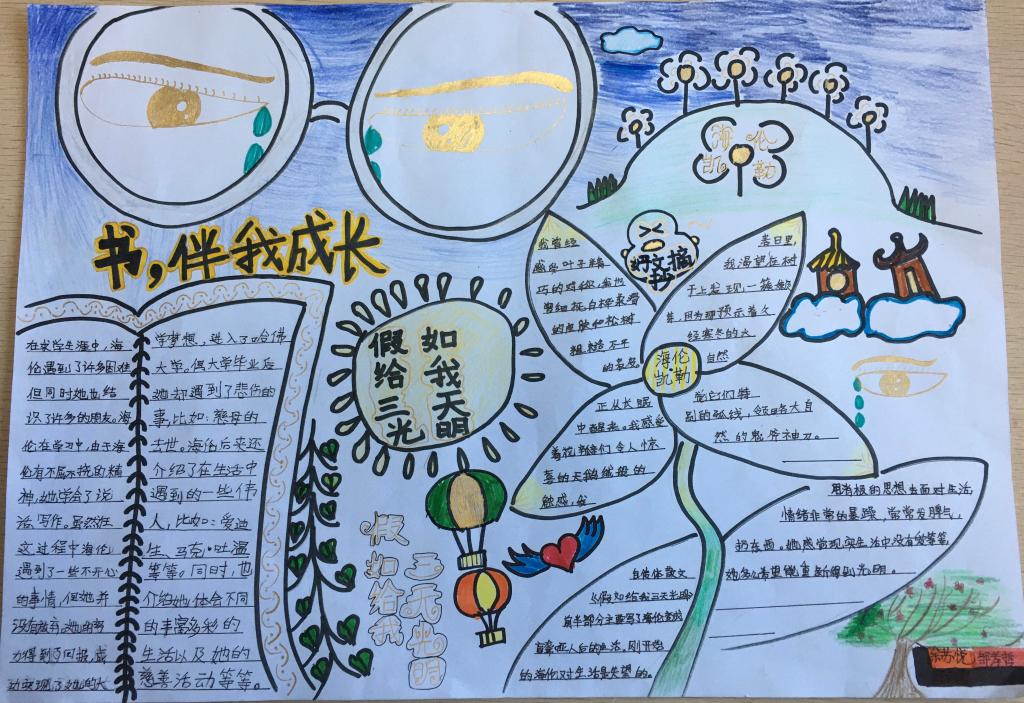 书，伴我成长
在求学生涯中，海
伦遇到了许多困难
但同时她也结
识许多的朋友。海
伦在学习中，由于海
伦有不屈不挠的精
神，她学会了说
话、写作。虽然在
这过程中海伦
遇到了一些不开心
的事情，但她并
没有放弃，她的努
力得到了回报，成
功实现了她的大
学梦想，进入了哈佛
大学。偶大学毕业后
她却遇到了悲伤的
事，比如：慈母的
去世。海伦后来还
介绍了在生活中
遇到的一些伟
人，比如：爱迪
生、马克·吐温
等等。同时，也
介绍她体会不同
的丰富多彩的
生活以及她的
慈善活动等等。
假如
给我
三天
光明
假如给我
三天光明
海伦
凯勒
好文摘抄
我曾经
感受叶子精
巧的对称，
的皮肤和松树
粗糙不平
的表皮。
春日里，
我渴望在树
干上发现一
经寒冬的大
自然
海伦
凯勒
正从长眠
中醒来。我感受
着花瓣们令人惊
喜的天鹅绒般的
触感，
觉它们特
别的弧线，领略大自
然的鬼斧神刀。
自传体散文
《假如给我三天光明》
前半部分主要写了海伦变成
盲聋哑人后的生活，刚开始
的海伦对生活是失望的。
用消极的思想去面对生活，
情绪非常的暴躁，常常发脾气，
扔东西。她感觉现实生活中没有
她多么希望能重新得到光明。